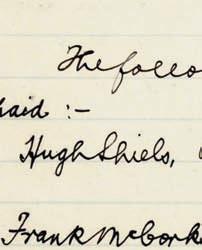 The follo
haid :-
Hugh Shiels,
Frank McCork